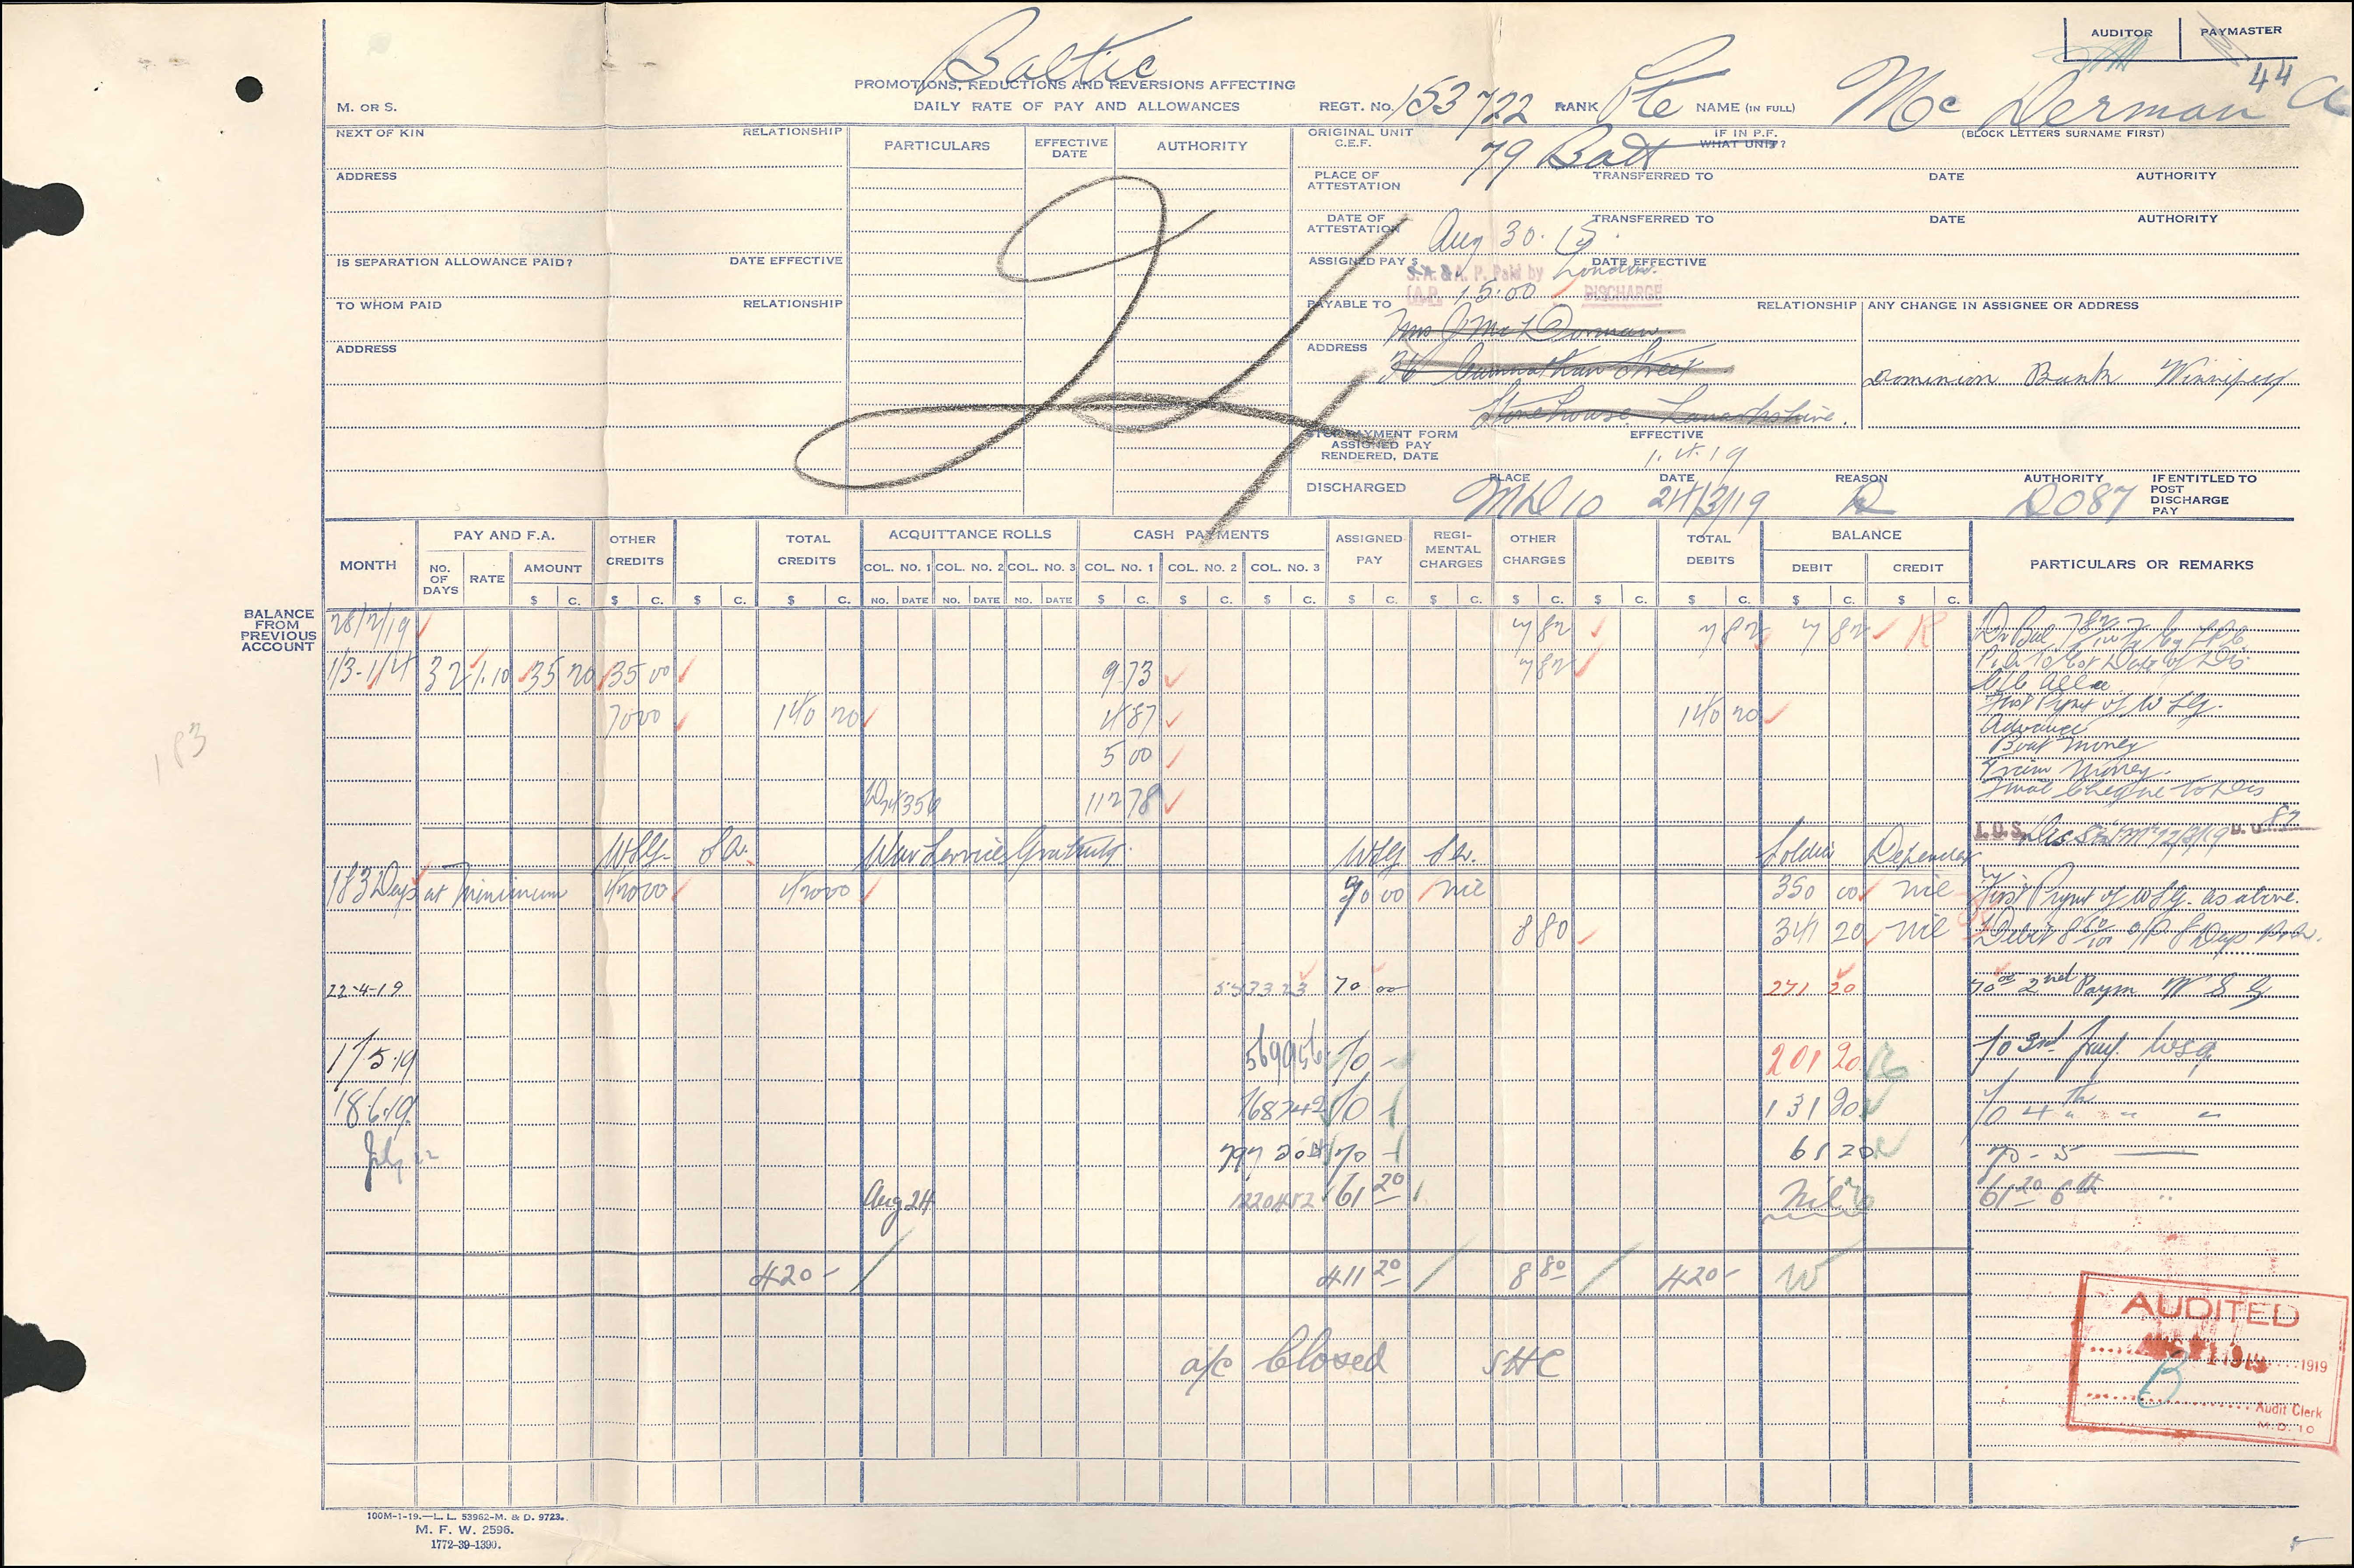 AUDITOR PAYMASTER
Baltic
44
PROMOTIONS, REDUCTIONS AND REVERSIONS AFFECTING
DAILY RATE OF PAY AND ALLOWANCES
M. OR S.
REGT. No. 153722 RANK Pte NAME (IN FULL) McDerman A
(BLOCK LETTERS SURNAME FIRST)
NEXT OF KIN RELATIONSHIP
PARTICULARS EFFECTIVE DATE AUTHORITY
ORIGINAL UNIT C.E.F. 79 Batt IF IN P.F. WHAT UNIT?
ADDRESS
PLACE OF ATTESTATION TRANSFERRED TO DATE AUTHORITY
DATE OF ATTESTATION Aug 30. 15. TRANSFERRED TO DATE AUTHORITY
IS SEPARATION ALLOWANCE PAID? DATE EFFECTIVE
ASSIGNED PAY $ DATE EFFECTIVE
S.A. & A. P. Paid by London.
(A.P. 15.00 DISCHARGE
TO WHOM PAID RELATIONSHIP
PAYABLE TO RELATIONSHIP ANY CHANGE IN ASSIGNEE OR ADDRESS
Mrs J Mc Dorman.
ADDRESS
ADDRESS 36 Street
Dominion Bank Winnipeg
Stonehouse Lanarkshire.
STOP PAYMENT FORM ASSIGNED PAY RENDERED, DATE EFFECTIVE
1.4.19
DISCHARGED PLACE MD 10 DATE 24/3/19 REASON D AUTHORITY D087 IF ENTITLED TO POST DISCHARGE PAY
MONTH PAY AND F.A. OTHER CREDITS TOTAL CREDITS ACQUITTANCE ROLLS CASH PAYMENTS ASSIGNED PAY REGIMENTAL CHARGES OTHER CHARGES TOTAL DEBITS BALANCE PARTICULARS OR REMARKS
NO. OF DAYS RATE AMOUNT COL. NO. 1 COL. NO. 2 COL. NO. 3 COL. NO. 1 COL. NO. 2 COL. NO. 3 DEBIT CREDIT
$ C. $ C. $ C. $ C. NO. DATE NO. DATE NO. DATE $ C. $ C. $ C. $ C. $ C. $ C. $ C. $ C. $ C. $ C.
BALANCE FROM PREVIOUS ACCOUNT
28/2/19 7 82 7 82 7 82 R Dr Bal 7 82/100
1/3-1/4 32 1.10 35 20 35 00 9 73 7 82 P. & A. to Date of Dis.
Clo Allce
70 00 140 20 4 87 140 20 First Pymt of WSG.
Advance
5 00 Boat Money
Train Money.
112 78 Final Cheque to Dis
87
WSG. SA. War Service Gratuity. WSG SA. Soldier Dependent
183 Days at Minimum 420 00 420 00 70 00 nil 350 00 nil First Pymt of WSG. as above.
8 80 341 20 nil Debit 8 80/100 o/p 8 Days
22-4-19 543323 70 00 271 20 70 00 2nd Paym W S G
17/5.19 569956 70 - 201 20 70 3rd. Pay. WSG
18.6.19. 768742 70 - 131 20 70 4th " " "
July 22 797204 70 - 61 20 70 - 5
Aug 24 1220452 61 20 Nil 61 20 6th "
420- 411 20 8 80 420-
a/c Closed SHC
183
AUDITED
1919
Audit Clerk
M.D. 10
100M-1-19.—L. L. 53962-M. & D. 9723.
M. F. W. 2596.
1772-39-1390.